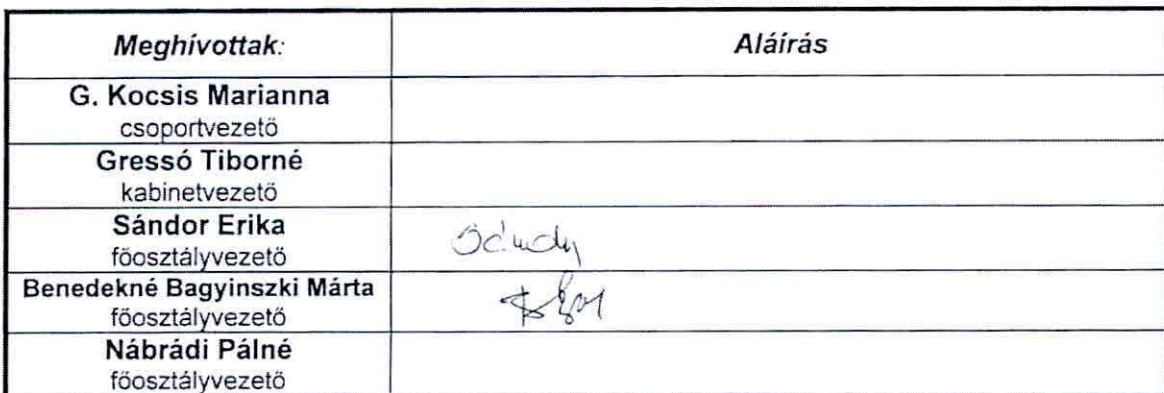 Meghívottak: Aláírás
G. Kocsis Marianna
csoportvezető
Gressó Tiborné
kabinetvezető
Sándor Erika
főosztályvezető
Benedekné Bagyinszki Márta
főosztályvezető
Nábrádi Pálné
főosztályvezető